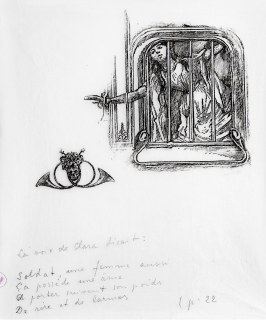 La voix de Clara disait :
Soldat, une femme aussi
Ça possède une âme
à porter suivant son poids
De rire et de larmes
( p. 22